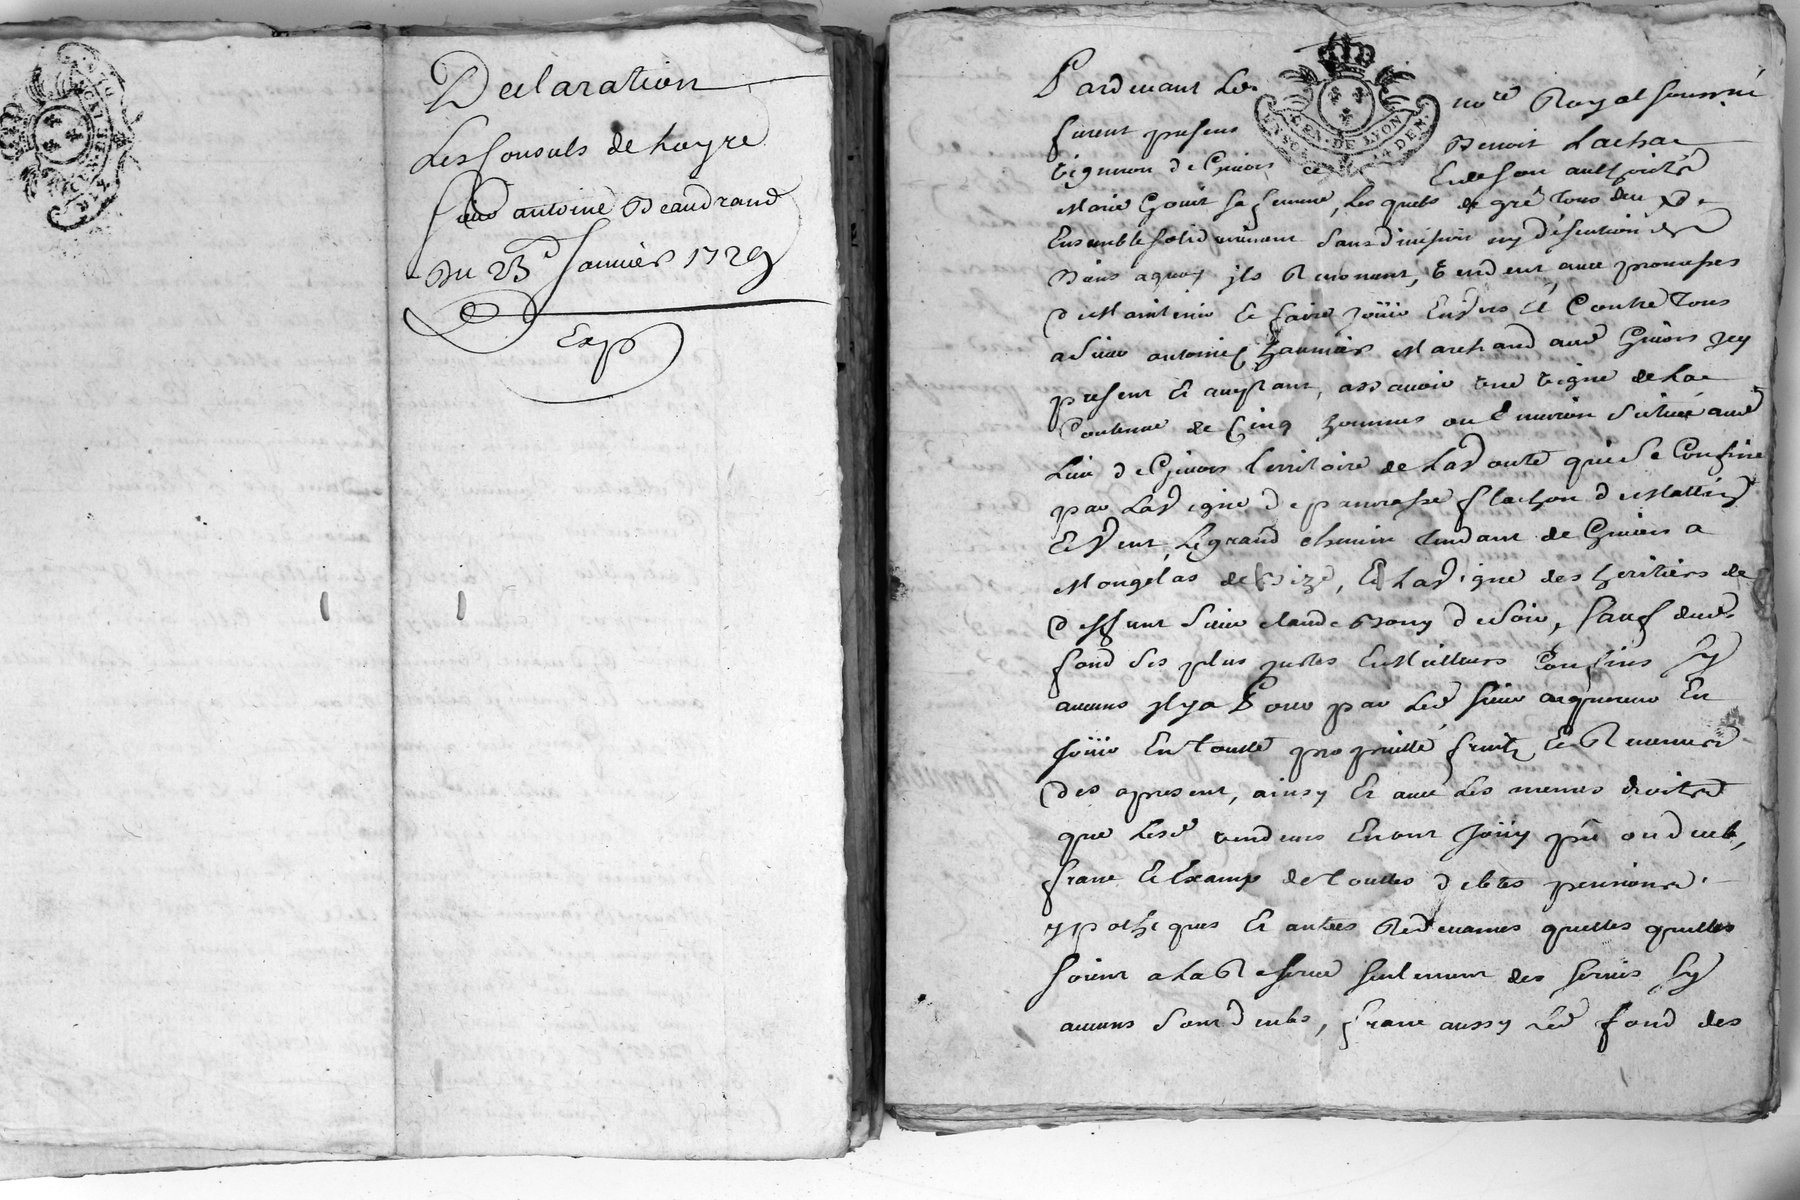 Declaration
Les Consuls de Loyre
Sieur antoine Beaudrand
Du 23e Janvier 1729
Exp
Pardevant Le nore Royal soussigné
furent presens Benoit Lachat
vigneron de Givors et de son authorité
Marie Gouit sa femme, Lesquels de gré tous deux
Ensemble solidairement sans division ny discution de
biens a quoy ils Renoncent, vendent avec promesses
de Maintenir et faire jouir Envers et Contre Tous
a Sieur antoine Marchand aud Givors icy
present et acceptant, assavoir une vigne de La
Contenue de Cinq hommes ou Environ Scituée aud
Lieu de Givors Territoire de La voute qui se Confine
par La vigne de pancrasse flachon de
Et vent, Le grand chemin tendant de Givors a
Mongelas de bize, Et La vigne des heritiers de
deffunt Sieur claude bony de soir, sauf dud
fond Ses plus justes Et Meilleurs Confins sy
aucuns il y a Pour par Led sieur acquereur En
jouir En toutte proprieté fruitz Et Revenus
des apresent, ainsy Et avec Les memes droits
que Lesd vendeurs En ont jouy pu ou deub,
franc Et Exempt de touttes debtes pensions
ypotheques Et autres Redevances quelles quelles
soient a La Reserve seulement des servis sy
aucuns sont deubs, franc aussy Led fond des
GEN. DE LYON
4 DEN.